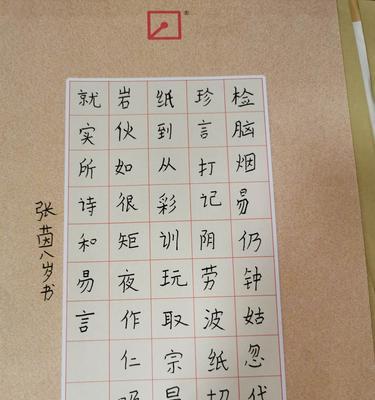 检脑烟易仍钟姑忽代
珍言打记阴劳波纸切
纸到从彩训玩取宗
岩伙如很矩夜作仁
就实所诗和易言
张茵八岁书